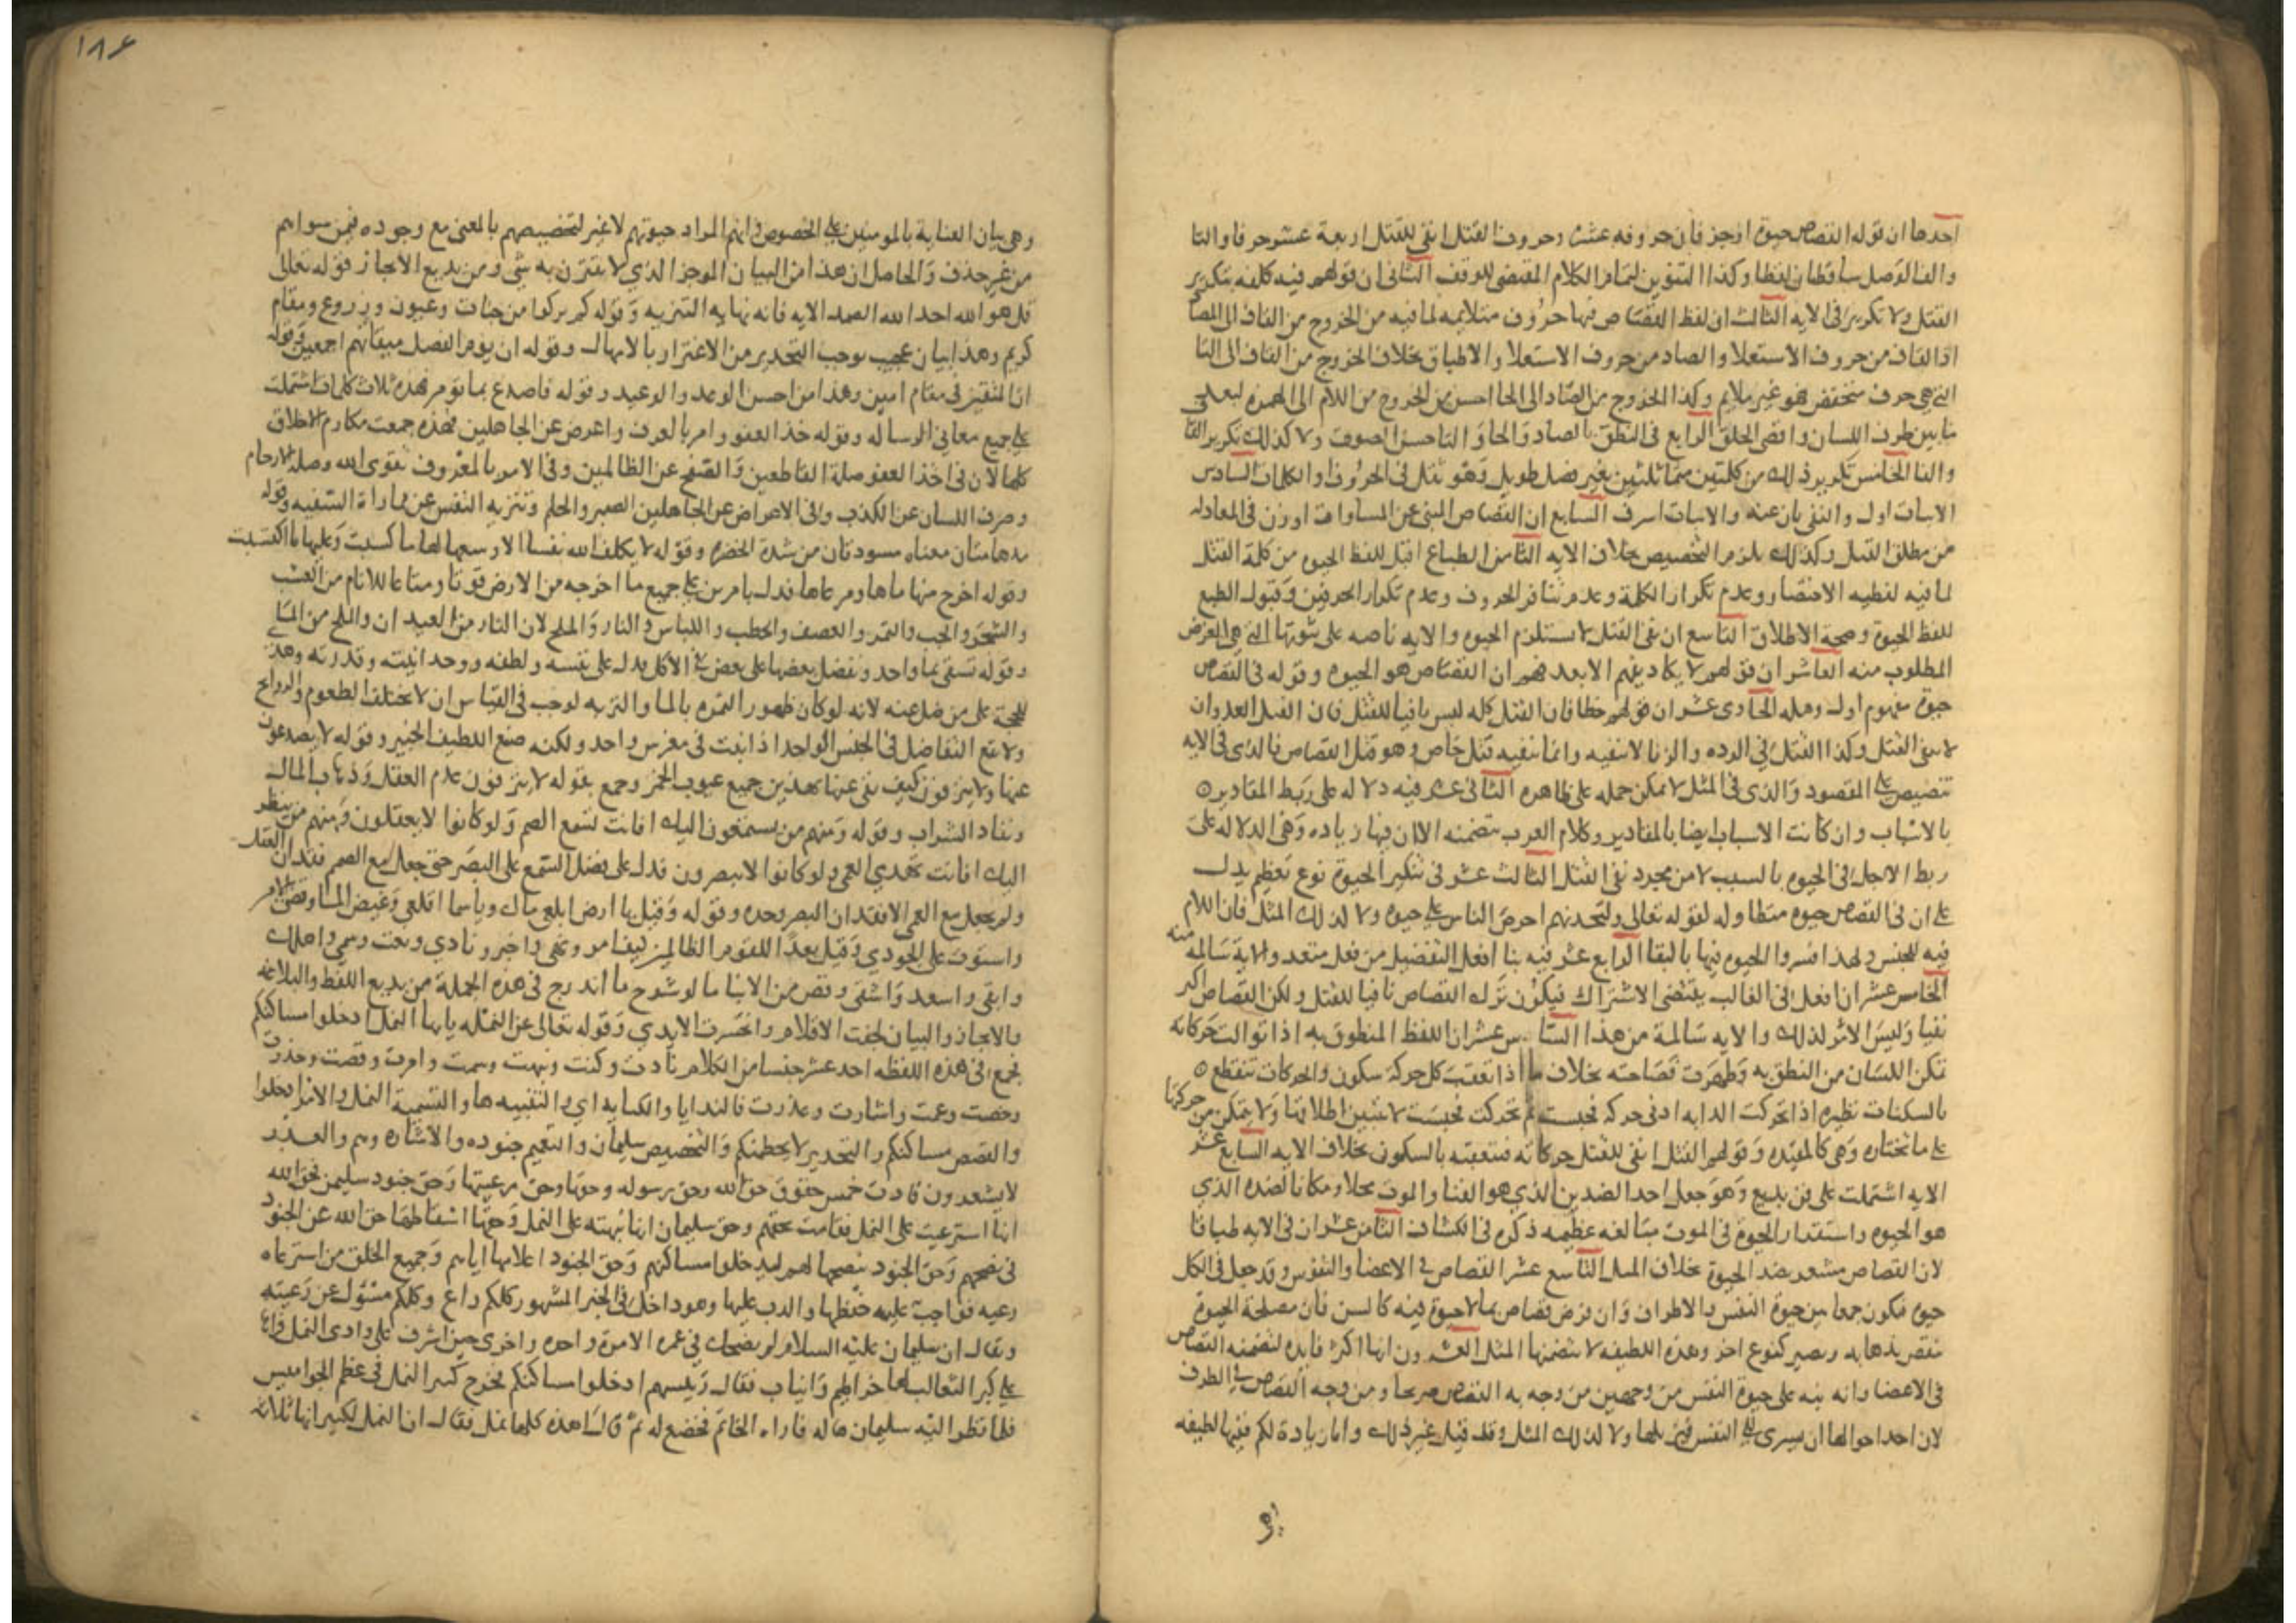 احدها ان قوله القصاص حيوة اوجز فان حروفه عشرة وحروف القتل انفى للقتل اربعة عشر حرفا والتا
والف الوصل ساقطان لفظا وكذا التنوين لتمام الكلام المقتضى للوقف الثانى ان قولهم فيه كلفه بتكرير
القتل ولا تكرير فى الايه الثالث ان لفظ القصاص فيها حروف متلايمه لما فيه من الخروج من القاف الى الصاد
اذ القاف من حروف الاستعلا والصاد من حروف الاستعلا والاطباق بخلاف الخروج من القاف الى التا
التى هى حرف منخفض فهو غير ملايم وكذا الخروج من الصاد الى الحا احسن من الخروج من اللام الى الهمزه لبعد
ما بين طرف اللسان واقصى الحلق الرابع فى النطق بالصاد والحا والتا حسن الصوت ولا كذلك تكرير القاف
والتا الخامس تكرير ذلك من كلمتين متماثلتين بغير فصل طويل وهو ثقل فى الحروف او الكلمات السادس
الاثبات اول والنفى ثان عنه والاثبات اشرف السابع ان القصاص المبنى عن المساواة اوزن فى المعادله
من مطلق القتل وكذلك يلزم التخصيص بخلاف الايه الثامن الطباع اقبل للفظ الحيوه من كلمة القتل
لما فيه لفظيه الاختصار وعدم تكرار الكلمة وعدم تنافر الحروف وعدم تكرار الحرفين وقبول الطبع
للفظ الحيوة وصحة الاطلاق التاسع ان نفى القتل لا يستلزم الحيوه والايه ناصه على ثبوتها التى هى الغرض
المطلوب منه العاشر ان قولهم لا يكاد يفهم الا بعد فهم ان القصاص هو الحيوه وقوله فى القصاص
حيوة مفهوم اول وهله الحادى عشر ان قولهم خطا فان القتل كله ليس نافيا للقتل فان القتل العدوان
لا ينفى القتل وكذا القتل فى الرده والزنا لا ينفيه وانما ينفيه قتل خاص وهو قتل القصاص فالذى فى الايه
تنصيص على المقصود والذى فى المثل لا يمكن حمله على ظاهره الثانى عشر فيه دلاله على ربط المقادير
بالاسباب وان كانت الاسباب ايضا بالمقادير وكلام العرب يتضمنه الا ان فيها زياده وهى الدلاله على
ربط الاجل فى الحيوه بالسبب لا من مجرد نفى القتل الثالث عشر فى تنكير الحيوة نوع تعظيم يدل
على ان فى القصاص حيوه متطاوله لقوله تعالى ولتجدنهم احرص الناس على حيوه ولا كذلك المثل فان اللام
فيه للجنس ولهذا فسروا الحيوه فيها بالبقا الرابع عشر فيه بنا افعل التفضيل من فعل متعد والاية سالمة منه
الخامس عشر ان افعل فى الغالب يقتضى الاشتراك فيكون ترك القصاص نافيا للقتل ولكن القصاص اكثر
نفيا وليس الامر لذلك والايه سالمة من هذا السادس عشر ان اللفظ المنطوق به اذا توالت حركاته
تمكن اللسان من النطق به وظهرت فصاحته بخلاف ما اذا تعقب كل حركة سكون والحركات تنقطع
بالسكنات نظيره اذا تحركت الدابه ادنى حركه فحبست ثم تحركت فحبست لا يتبين اطلاقها ولا يتمكن من حركتها
على ما تختاره وهى كالمقيده وقولهم القتل انفى للقتل حركاته متعقبه بالسكون بخلاف الايه السابع عشر
الايه اشتملت على فن بديع وهو جعل احد الضدين الذى هو الفنا والموت محلا ومكانا لضده الذى
هو الحيوه واستقرار الحيوة فى الموت مبالغه عظيمه ذكره فى الكشاف الثامن عشر ان فى الايه طباقا
لان القصاص مشعر بضد الحيوة بخلاف المثل التاسع عشر القصاص فى الاعضا والنفوس وقد جعل فى الكل
حيوه فيكون جمعا بين حيوة النفس والاطراف وان فرض قصاص بما لا حيوة فيه كالسن فان مصلحة الحيوة
تنقص بذهابه ويصير كنوع اخر وهذه اللطيفه لا يتضمنها المثل العشرون انها اكثر فايده لتضمنه القصاص
فى الاعضا وانه نبه على حيوة النفس من وجهين من وجه به القصاص صريحا ومن وجه القصاص فى الطرف
لان احد احوالها ان يسرى الى النفس فيزيلها ولا لذلك المثل وقد قيل غير ذلك واما زيادة لكم ففيها لطيفه
وهى
١٨٦
وهى بيان العناية بالمومنين على الخصوص فانهم المراد حيوتهم لا غير لتخصيصهم بالمعنى مع وجوده فيمن سواهم
من غير حذف والحاصل ان هذا من البيان الموجز الذى لا يقترن به شى ومن بديع الايجاز قوله تعالى
قل هو الله احد الله الصمد الايه فانه نهايه التنزيه وقوله كم تركوا من جنات وعيون وزروع ومقام
كريم وهذا بيان عجيب يوجب التحذير من الاغترار بالامهال وقوله ان يوم الفصل ميقاتهم اجمعين وقوله
ان المتقين فى مقام امين وهذا من احسن الوعد والوعيد وقوله فاصدع بما تومر فهذه ثلاث كلمات اشتملت
على جميع معانى الرساله وقوله خذ العفو وامر بالعرف واعرض عن الجاهلين فهذه جمعت مكارم الاخلاق
كلها لان فى اخذ العفو صلة القاطعين والصفح عن الظالمين وفى الامر بالمعروف تقوى الله وصلة الارحام
وصرف اللسان عن الكذب وفى الاعراض عن الجاهلين الصبر والحلم وتنزيه النفس عن مماراة السفيه وقوله
مدهامتان معناه مسودتان من شدة الخضره وقوله لا يكلف الله نفسا الا وسعها لها ما كسبت وعليها ما اكتسبت
وقوله اخرج منها ماها ومرعاها فدل بامرين على جميع ما اخرجه من الارض قوتا ومتاعا للانام من العشب
والشجر والحب والثمر والعصف والحطب واللباس والنار والملح لان النار من العيدان والملح من الما
وقوله تسقى بما واحد ونفضل بعضها على بعض فى الاكل يدل على نفسه ولطفه ووحدانيته وقدرته وهذا
للحجة على من ضل عنه لانه لو كان ظهور الثمره بالما والتربه لوجب فى القياس ان لا تختلف الطعوم والروايح
ولا يقع التفاضل فى الجنس الواحد اذا نبت فى مغرس واحد ولكنه صنع اللطيف الخبير وقوله لا يصدعون
عنها ولا ينزفون كيف نفى عنها بهذين جميع عيوب الخمر وجمع بقوله لا ينزفون عدم العقل وذهاب المال
ونفاد الشراب وقوله ومنهم من يستمعون اليك افانت تسمع الصم ولو كانوا لا يعقلون ومنهم من ينظر
اليك افانت تهدى العمى ولو كانوا لا يبصرون فدل على فضل السمع على البصر حتى جعل مع الصم فقدان العقل
ولم يجعل مع العمى الا فقدان البصر وحده وقوله وقيل يا ارض ابلعى ماك ويا سما اقلعى وغيض الما وقضى الامر
واستوت على الجودى وقيل بعدا للقوم الظالمين كيف امر ونهى واخبر ونادى ونعت وسمى واهلك
وابقى واسعد واشقى وقص من الانبا ما لو شرح ما اندرج فى هذه الجملة من بديع اللفظ والبلاغه
والايجاز والبيان لجفت الاقلام وانحسرت الايدى وقوله تعالى عن النمله يا ايها النمل ادخلوا مساكنكم
فجمع فى هذه اللفظه احد عشر جنسا من الكلام نادت وكنت ونبهت وسمت وامرت وقصت وحذرت
وخصت وعمت واشارت وعذرت فالندا يا والكنايه اى والتنبيه ها والتسمية النمل والامر ادخلوا
والقصص مساكنكم والتحذير لا يحطمنكم والتخصيص سليمان والتعميم جنوده والاشاره وهم والعذر
لا يشعرون فادت خمس حقوق حق الله وحق رسوله وحقها وحق رعيتها وحق جنود سليمن فحق الله
انها استرعيت على النمل فقامت بحقهم وحق سليمان انها نبهته على النمل وحقها اسقاطها حق الله عن الجنود
فى نصحهم وحق الجنود بنصحها لهم ليدخلوا مساكنهم وحق الجنود اعلامها اياهم وجميع الخلق من استرعاه
رعيه فواجب عليه حفظها والذب عليها وهو داخل فى الخبر المشهور كلكم راع وكلكم مسؤل عن رعيته
ويقال ان سليمان عليه السلام لم يضحك فى عمره الا مرة واحده واخرى حين اشرف على وادى النمل فراها
على كبر الثعالب لها خراطيم وانياب فقال رييسهم ادخلوا مساكنكم فخرج كبير النمل فى عظم الجواميس
فلما نظر اليه سليمان هاله فاراه الخاتم فخضع له ثم قال اهذه كلها نمل فقال ان النمل لكبير انها ثلاثه